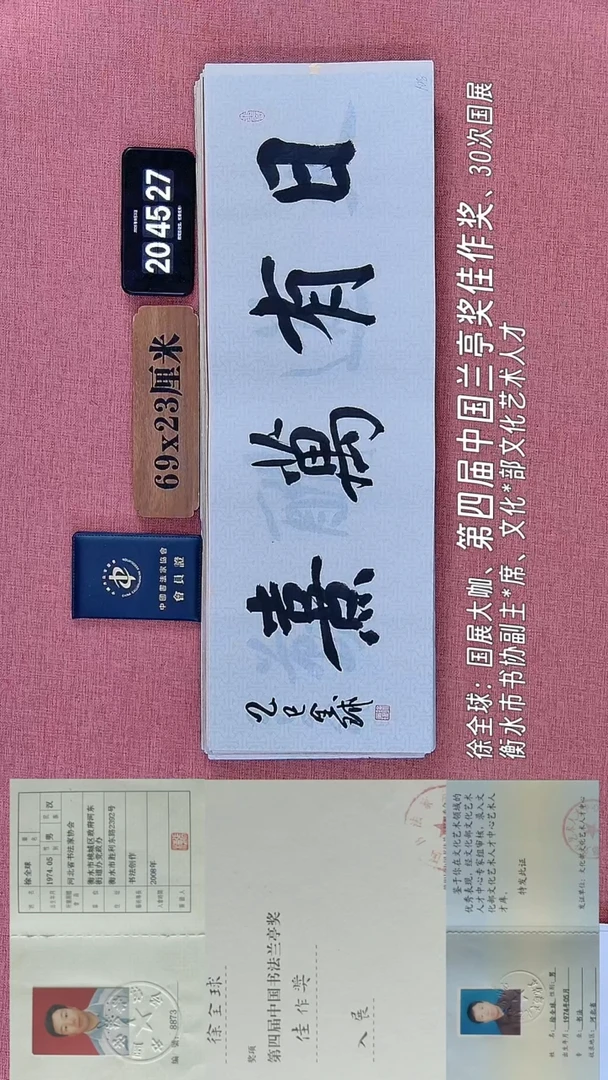 日有萬熹
乙巳全球
中國書法家協會
會員證
69x23厘米
20 45 27
徐全球：国展大咖、第四届中国兰亭奖佳作奖、30次国展
衡水市书协副主*席、文化*部文化艺术人才
编号: 8873
徐全球
1974.05 男 汉
河北省书法家协会
衡水市桃城区政府河东
街道办党政办
衡水市胜利东路2202号
书法创作
2008年
徐全球
奖项
第四届中国书法兰亭奖
佳作奖
入展
姓名：徐全球 性别：男
出生年月：1974年05月
专业：书法
河北省
鉴于你在文化艺术领域的
优秀表现，经文化部文化艺术
人才中心专家组审核，录入文
化部文化艺术人才中心艺术人
才库。
特发此证
发证单位：文化部文化艺术人才中心